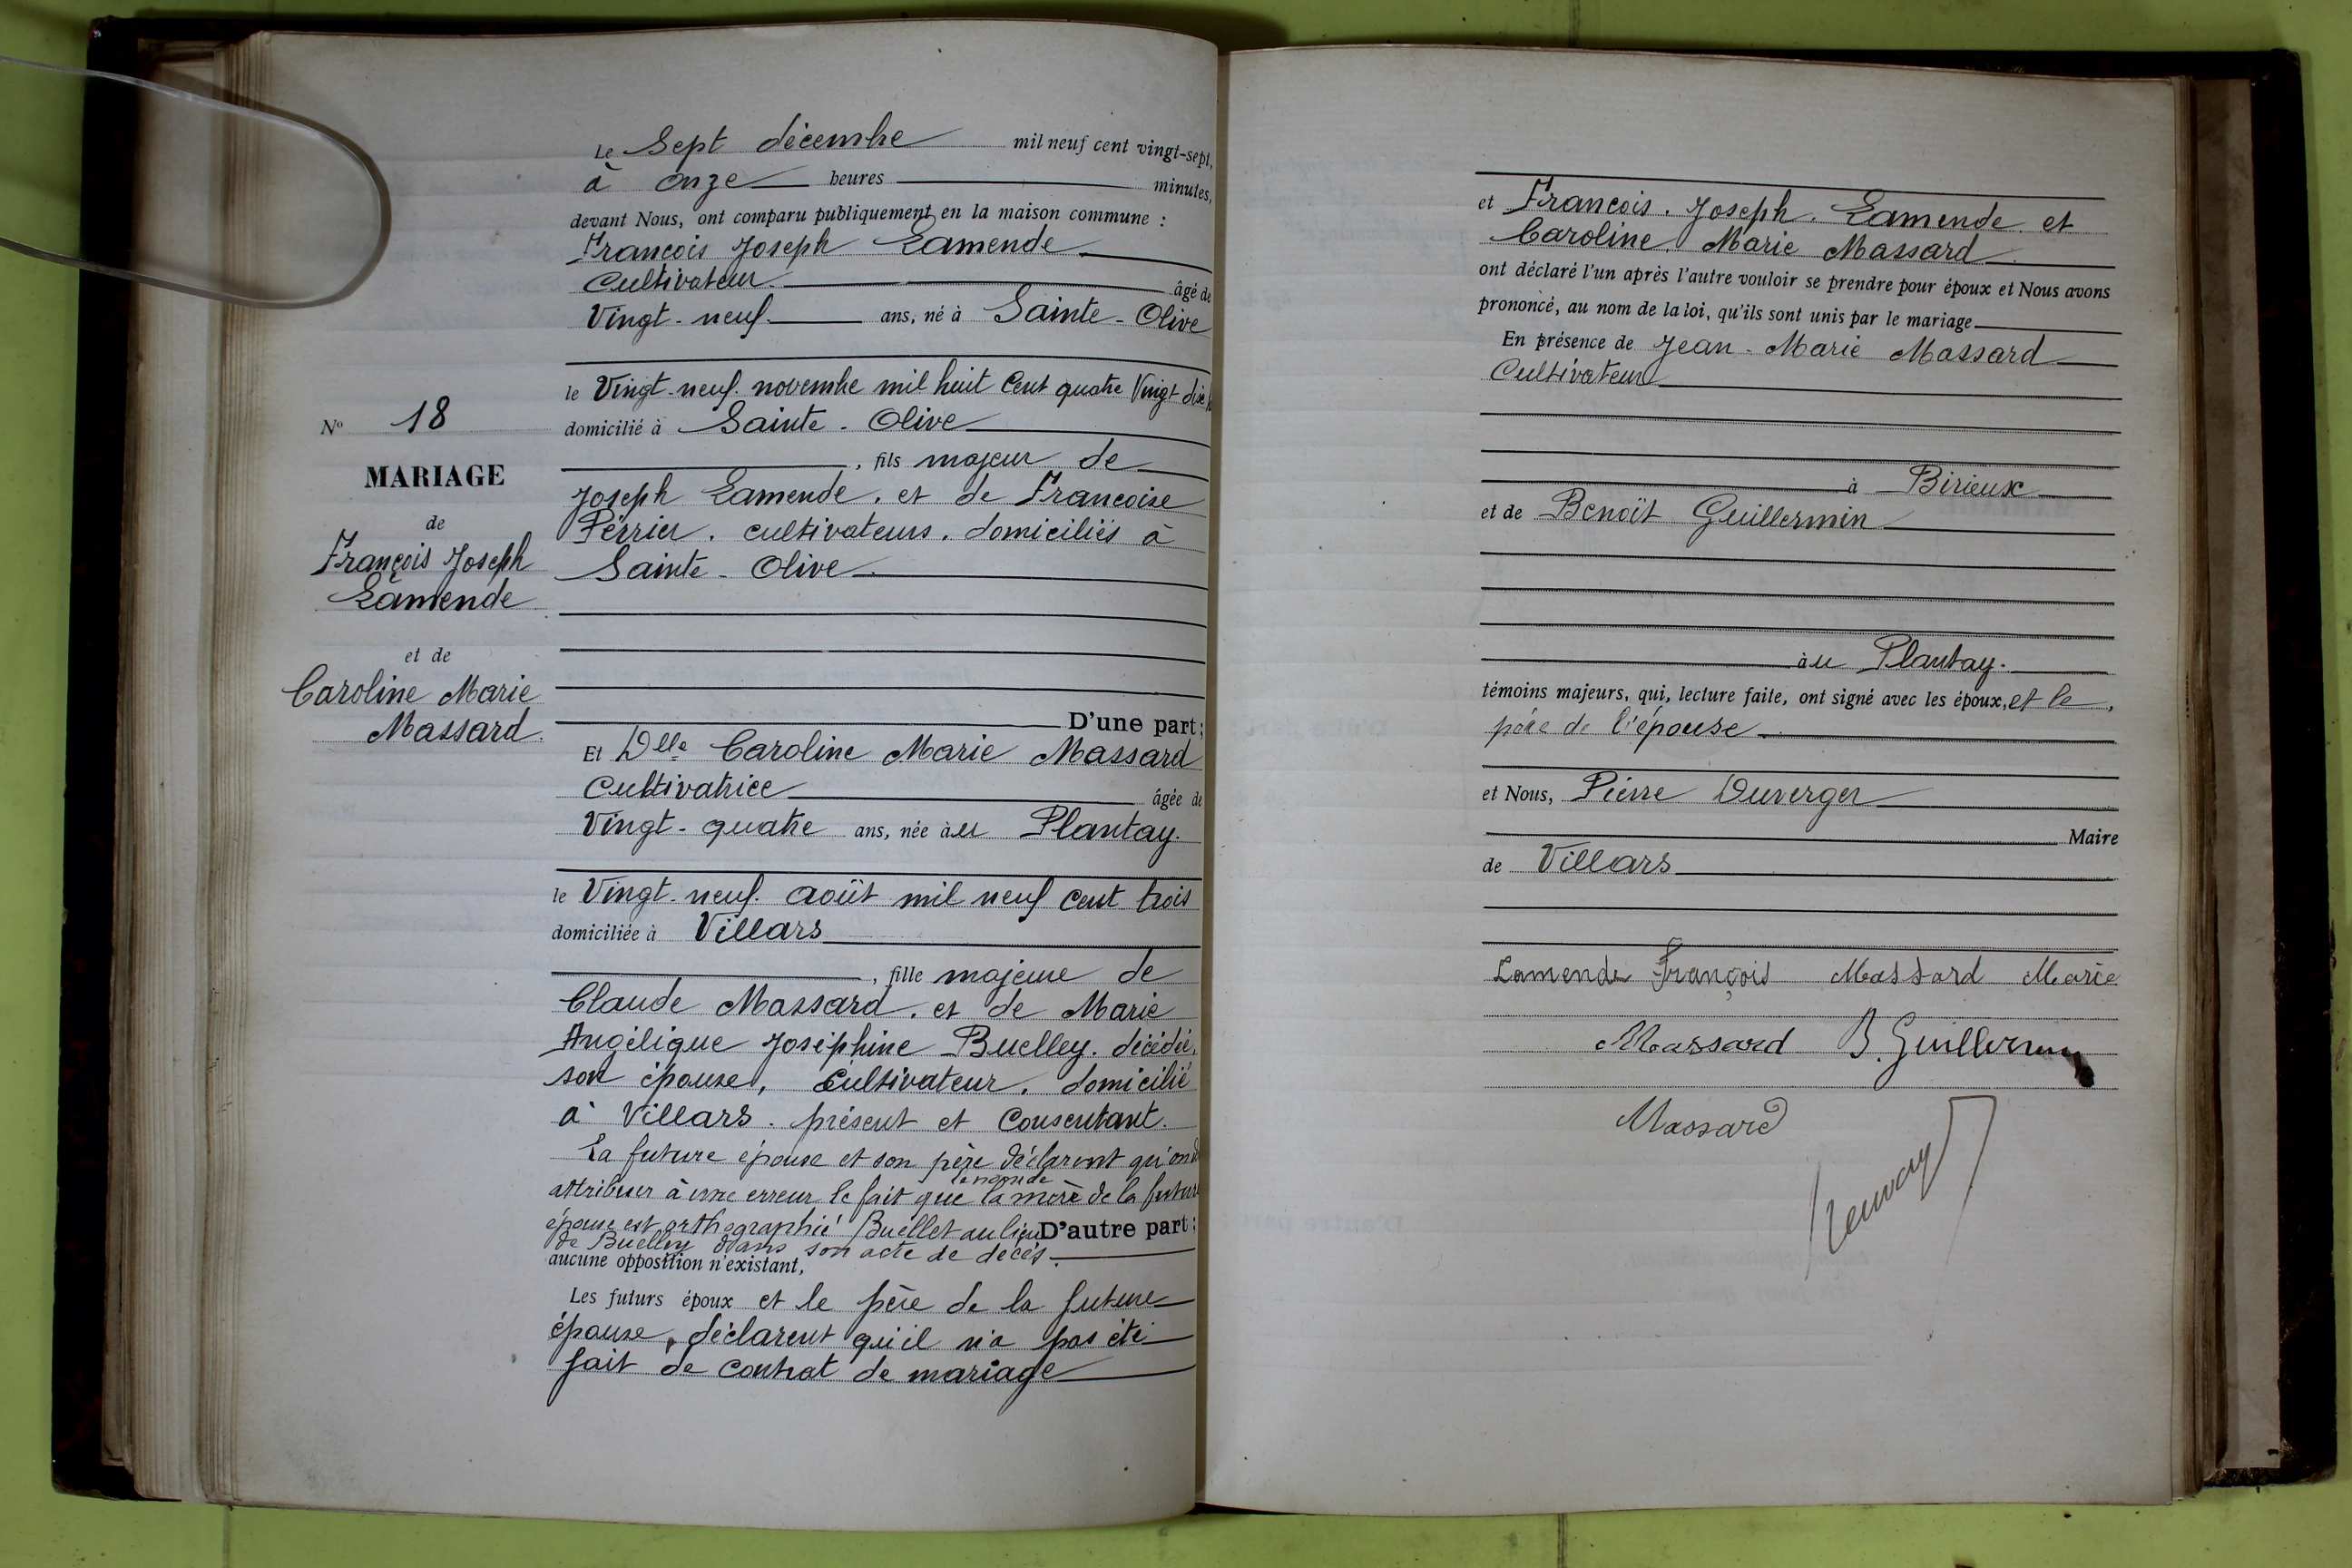 Le Sept décembre mil neuf cent vingt-sept,
à onze heures minutes,
devant Nous, ont comparu publiquement en la maison commune :
François Joseph Lamende
Cultivateur âgé de
Vingt-neuf ans, né à Sainte-Olive
le Vingt-neuf novembre mil huit Cent quatre Vingt dix
domicilié à Sainte-Olive
, fils majeur de
Joseph Lamende. et de Francoise
Perrier. cultivateurs. domiciliés à
Sainte-Olive
D'une part ;
Et Dlle Caroline Marie Massard
Cultivatrice âgée de
Vingt-quatre ans, née àu Plantay.
le Vingt-neuf août mil neuf cent trois
domiciliée à Villars
, fille majeure de
Claude Massard. et de Marie
Angélique Joséphine Buelley. décédée,
son épouse, Cultivateur. domicilié
à Villars. présent et Consentant.
La future épouse et son père déclarent qu'on
le nom de
attribuer à une erreur le fait que la mère de la future
épouse est orthographié Buellet au lieu D'autre part ;
de Buelley dans son acte de décès.
aucune opposition n'existant,
Les futurs époux et le père de la future
épouse, déclarent qu'il n'a pas été
fait de contrat de mariage
No 18
MARIAGE
de
François Joseph
Lamende
et de
Caroline Marie
Massard.
et François. Joseph. Lamende et
Caroline Marie Massard
ont déclaré l'un après l'autre vouloir se prendre pour époux et Nous avons
prononcé, au nom de la loi, qu'ils sont unis par le mariage
En présence de Jean-Marie Massard
Cultivateur
à Birieux
et de Benoît Guillermin
àu Plantay.
témoins majeurs, qui, lecture faite, ont signé avec les époux, et le
père de l'épouse
et Nous, Pierre Duverger
Maire
de Villars
Lamende François Massard Marie
Massard B. Guillermin
Massard